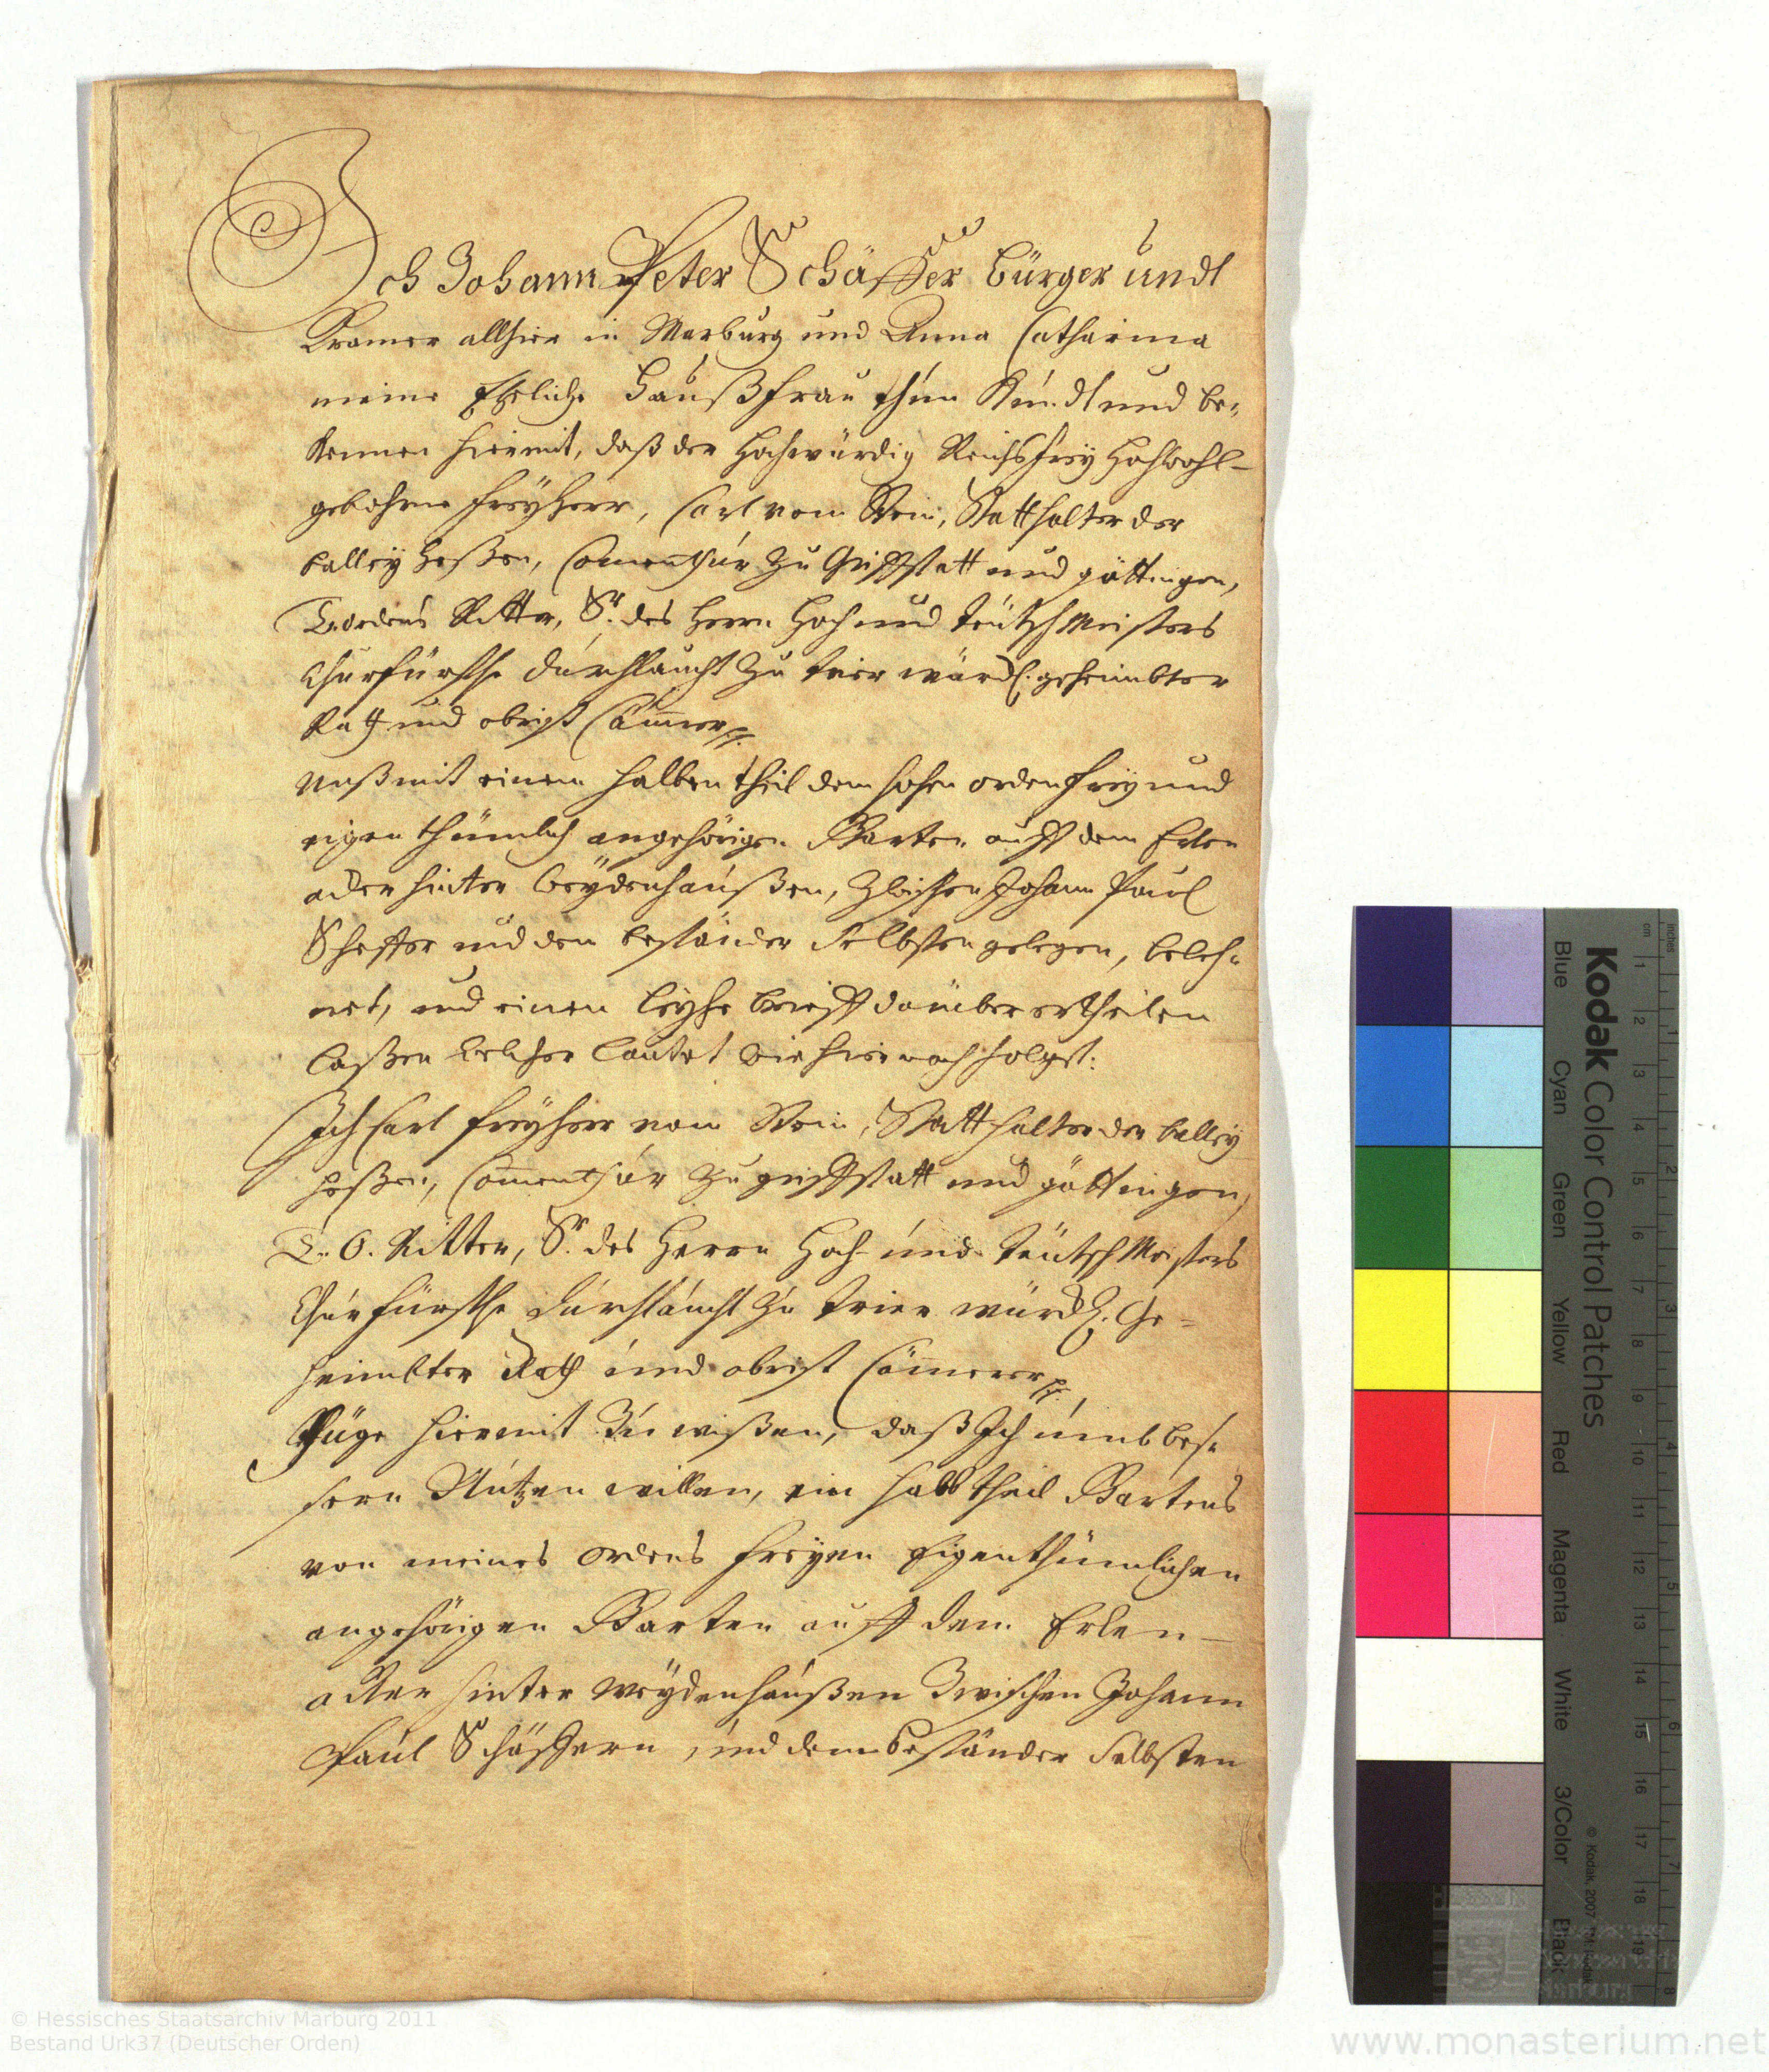 Ich Johann Peter Schäffer bürger undt
Kramer allhier in Marburg und Anna Catharina
meine Eheliche Haußfrau thun Kundt und be-
kennen hiermit, daß der Hochwürdig Reichsfrey Hochwohl-
gebohrne Freyherr, Carl vom Stein, Statthalter der
balley Heßen, Com̄enthur zu Griffstatt und göttingen,
T. ordens Ritter, Sr. des Herrn Hoch und teutsch Meisters
Churfürstle durchlaucht zu trier würckl. geheimbter
Rath und obrist Cäm̄erer
unß mit einem halben theil dem hohen orden frey und
eigenthümlich angehörigen Garten auff dem Erlen
acker hinter weydenhaußen, zwischen Johann Paul
Scheffer und dem beständer selbsten gelegen, beleh-
net, und einen leyhe brieff darüber ertheilen
laßen welcher lautet wie hiernach folgt:
Ich Carl freyherr vom Stein, Statthalter der balley
Heßen, Com̄enthur zu griffstatt und göttingen,
T. O. Ritter, Sr. des Herrn Hoch- und teutsch Meisters
Churfürstle durchlaucht zu trier würckl. Ge-
heimbter Rath und obrist Cäm̄erer
Füge hiermit zu wißen, daß Ich umb bes-
sern Nutzen willen, ein halb theil Gartens
von meines ordens freyen Eigenthümlichen
angehörigen Garten auff dem Erlen-
acker hinter weydenhaußen zwischen Johann
Paul Schäffern, und dem beständer selbsten
Kodak Color Control Patches
Blue Cyan Green Yellow Red Magenta White 3/Color Black
© Hessisches Staatsarchiv Marburg 2011
Bestand Urk37 (Deutscher Orden)
www.monasterium.net